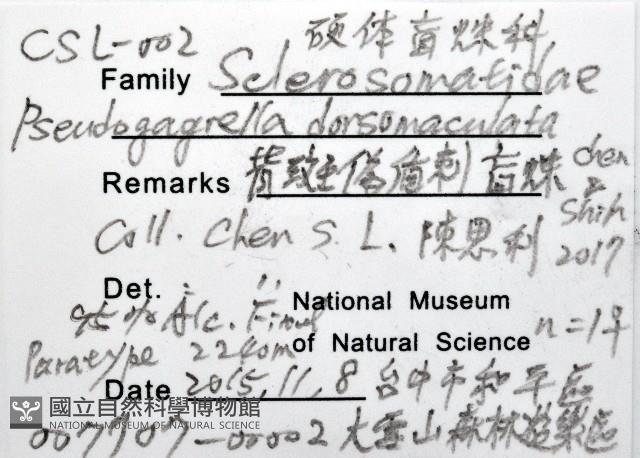 CSL-002 硬体盲蛛科
Family Sclerosomatidae
Pseudogagrella dorsomaculata
Remarks 背斑偽盾刺盲蛛 Chen & Shih 2017
Coll. Chen S. L. 陳思利
Det. 〃
National Museum
95% Alc.
of Natural Science n=1♀
Paratype 2240m
Date 2015,11,8 台中市和平區
國立自然科學博物館
NATIONAL MUSEUM OF NATURAL SCIENCE
007707-00002 大雪山森林遊樂區